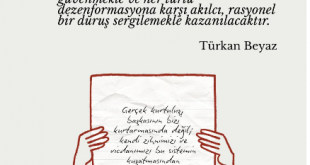 güvenmekle ve her türlü
dezenformasyona karşı akılcı, rasyonel
bir duruş sergilemekle kazanılacaktır.
Türkan Beyaz
Gerçek kurtuluş,
başkasının bizi
kurtarmasında değil;
kendi zihnimizi ve
vicdanımızı bu sistemin
kuşatmasından